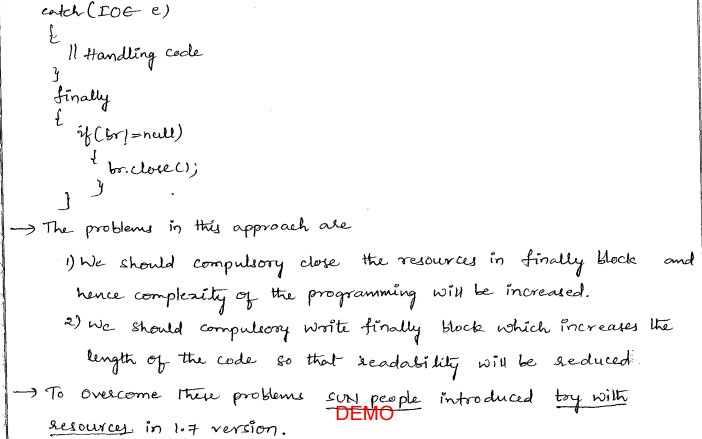 catch(IOE e)
{
// Handling code
}
finally
{
if(br!=null)
{
br.close();
}
}
→ The problems in this approach are
1) We should compulsory close the resources in finally block and
hence complexity of the programming will be increased.
2) We should compulsory write finally block which increases the
length of the code so that readability will be reduced.
→ To overcome these problems SUN people introduced try with
DEMO
resources in 1.7 version.